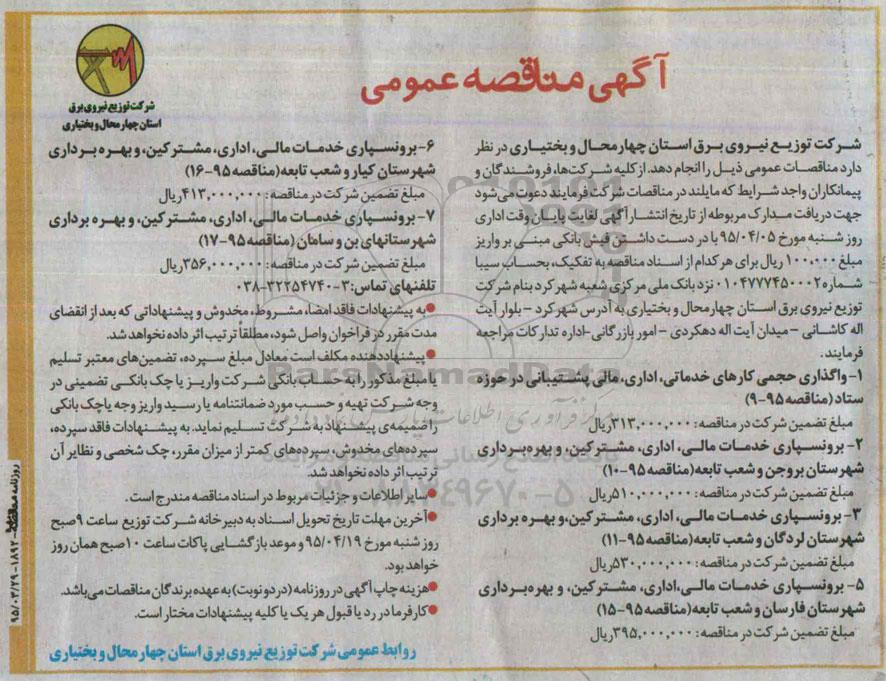 آگهی مناقصه عمومی
شرکت توزیع نیروی برق
استان چهارمحال و بختیاری
شرکت توزیع نیروی برق استان چهارمحال و بختیاری در نظر
دارد مناقصات عمومی ذیل را انجام دهد. از کلیه شرکت‌ها، فروشندگان و
پیمانکاران واجد شرایط که مایلند در مناقصات شرکت فرمایند دعوت می‌شود
جهت دریافت مدارک مربوطه از تاریخ انتشار آگهی لغایت پایان وقت اداری
روز شنبه مورخ ۹۵/۰۴/۰۵ با در دست داشتن فیش بانکی مبنی بر واریز
مبلغ ۱۰۰،۰۰۰ ریال برای هر کدام از اسناد مناقصه به تفکیک، بحساب سیبا
شماره ۰۱۰۴۷۷۷۴۵۰۰۰۲ نزد بانک ملی مرکزی شعبه شهرکرد بنام شرکت
توزیع نیروی برق استان چهارمحال و بختیاری به آدرس شهرکرد – بلوار آیت
اله کاشانی – میدان آیت اله دهکردی – امور بازرگانی – اداره تدارکات مراجعه
فرمایند.
۱- واگذاری حجمی کارهای خدماتی، اداری، مالی پشتیبانی در حوزه
ستاد (مناقصه ۹۵-۹)
مبلغ تضمین شرکت در مناقصه: ۳۱۳،۰۰۰،۰۰۰ریال
۲- برونسپاری خدمات مالی، اداری، مشترکین، و بهره‌برداری
شهرستان بروجن و شعب تابعه (مناقصه ۹۵-۱۰)
مبلغ تضمین شرکت در مناقصه: ۵۱۰،۰۰۰،۰۰۰ریال
۳- برونسپاری خدمات مالی، اداری، مشترکین،و بهره برداری
شهرستان لردگان و شعب تابعه (مناقصه ۹۵-۱۱)
مبلغ تضمین شرکت در مناقصه: ۵۳۰،۰۰۰،۰۰۰ریال
۵- برونسپاری خدمات مالی،اداری، مشترکین، و بهره‌برداری
شهرستان فارسان و شعب تابعه (مناقصه ۹۵-۱۵)
مبلغ تضمین شرکت در مناقصه: ۳۹۵،۰۰۰،۰۰۰ریال
۶- برونسپاری خدمات مالی، اداری، مشترکین، و بهره برداری
شهرستان کیار و شعب تابعه (مناقصه ۹۵-۱۶)
مبلغ تضمین شرکت در مناقصه: ۴۱۳،۰۰۰،۰۰۰ریال
۷- برونسپاری خدمات مالی، اداری، مشترکین، و بهره برداری
شهرستانهای بن و سامان (مناقصه ۹۵-۱۷)
مبلغ تضمین شرکت در مناقصه: ۳۵۶،۰۰۰،۰۰۰ریال
تلفنهای تماس:۳-۳۲۲۵۴۷۴۰-۰۳۸
●به پیشنهادات فاقد امضا، مشروط، مخدوش و پیشنهاداتی که بعد از انقضای
مدت مقرر در فراخوان واصل شود، مطلقاً ترتیب اثر داده نخواهد شد.
●پیشنهاددهنده مکلف است معادل مبلغ سپرده، تضمین‌های معتبر تسلیم
یا مبلغ مذکور را به حساب بانکی شرکت واریز یا چک بانکی تضمینی در
وجه شرکت تهیه و حسب مورد ضمانتنامه یا رسید واریز وجه یا چک بانکی
را ضمیمه‌ی پیشنهاد به شرکت تسلیم نماید. به پیشنهادات فاقد سپرده،
سپرده‌های مخدوش، سپرده‌های کمتر از میزان مقرر، چک شخصی و نظایر آن
ترتیب اثر داده نخواهد شد.
●سایر اطلاعات و جزئیات مربوط در اسناد مناقصه مندرج است.
●آخرین مهلت تاریخ تحویل اسناد به دبیرخانه شرکت توزیع ساعت ۹صبح
روز شنبه مورخ ۹۵/۰۴/۱۹ و موعد بازگشایی پاکات ساعت ۱۰صبح همان روز
خواهد بود.
●هزینه چاپ آگهی در روزنامه (در دو نوبت) به عهده برندگان مناقصات می‌باشد.
●کارفرما در رد یا قبول هر یک یا کلیه پیشنهادات مختار است.
روابط عمومی شرکت توزیع نیروی برق استان چهارمحال و بختیاری
ParsNamadData
۹۵/۰۳/۲۹-۱۸۹۲-روزنامه مناقصه